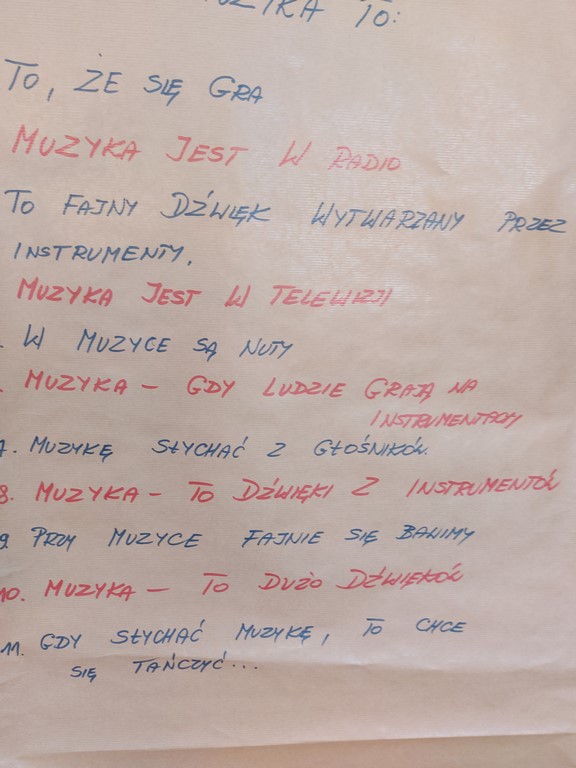 MUZYKA TO:
TO, ŻE SIĘ GRA
MUZYKA JEST W RADIO
TO FAJNY DŹWIĘK WYTWARZANY PRZEZ
INSTRUMENTY.
MUZYKA JEST W TELEWIZJI
W MUZYCE SĄ NUTY
MUZYKA – GDY LUDZIE GRAJĄ NA
INSTRUMENTACH
7. MUZYKĘ SŁYCHAĆ Z GŁOŚNIKÓW.
8. MUZYKA – TO DŹWIĘKI Z INSTRUMENTÓW
9. PRZY MUZYCE FAJNIE SIĘ BAWIMY
10. MUZYKA – TO DUŻO DŹWIĘKÓW
11. GDY SŁYCHAĆ MUZYKĘ, TO CHCE
SIĘ TAŃCZYĆ...